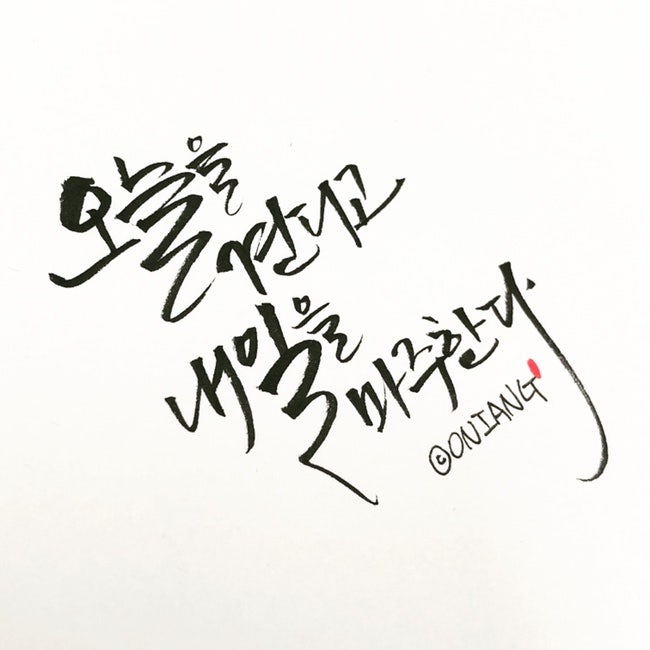 오늘을 견디고
내일을 마주한다.
©ONIANG